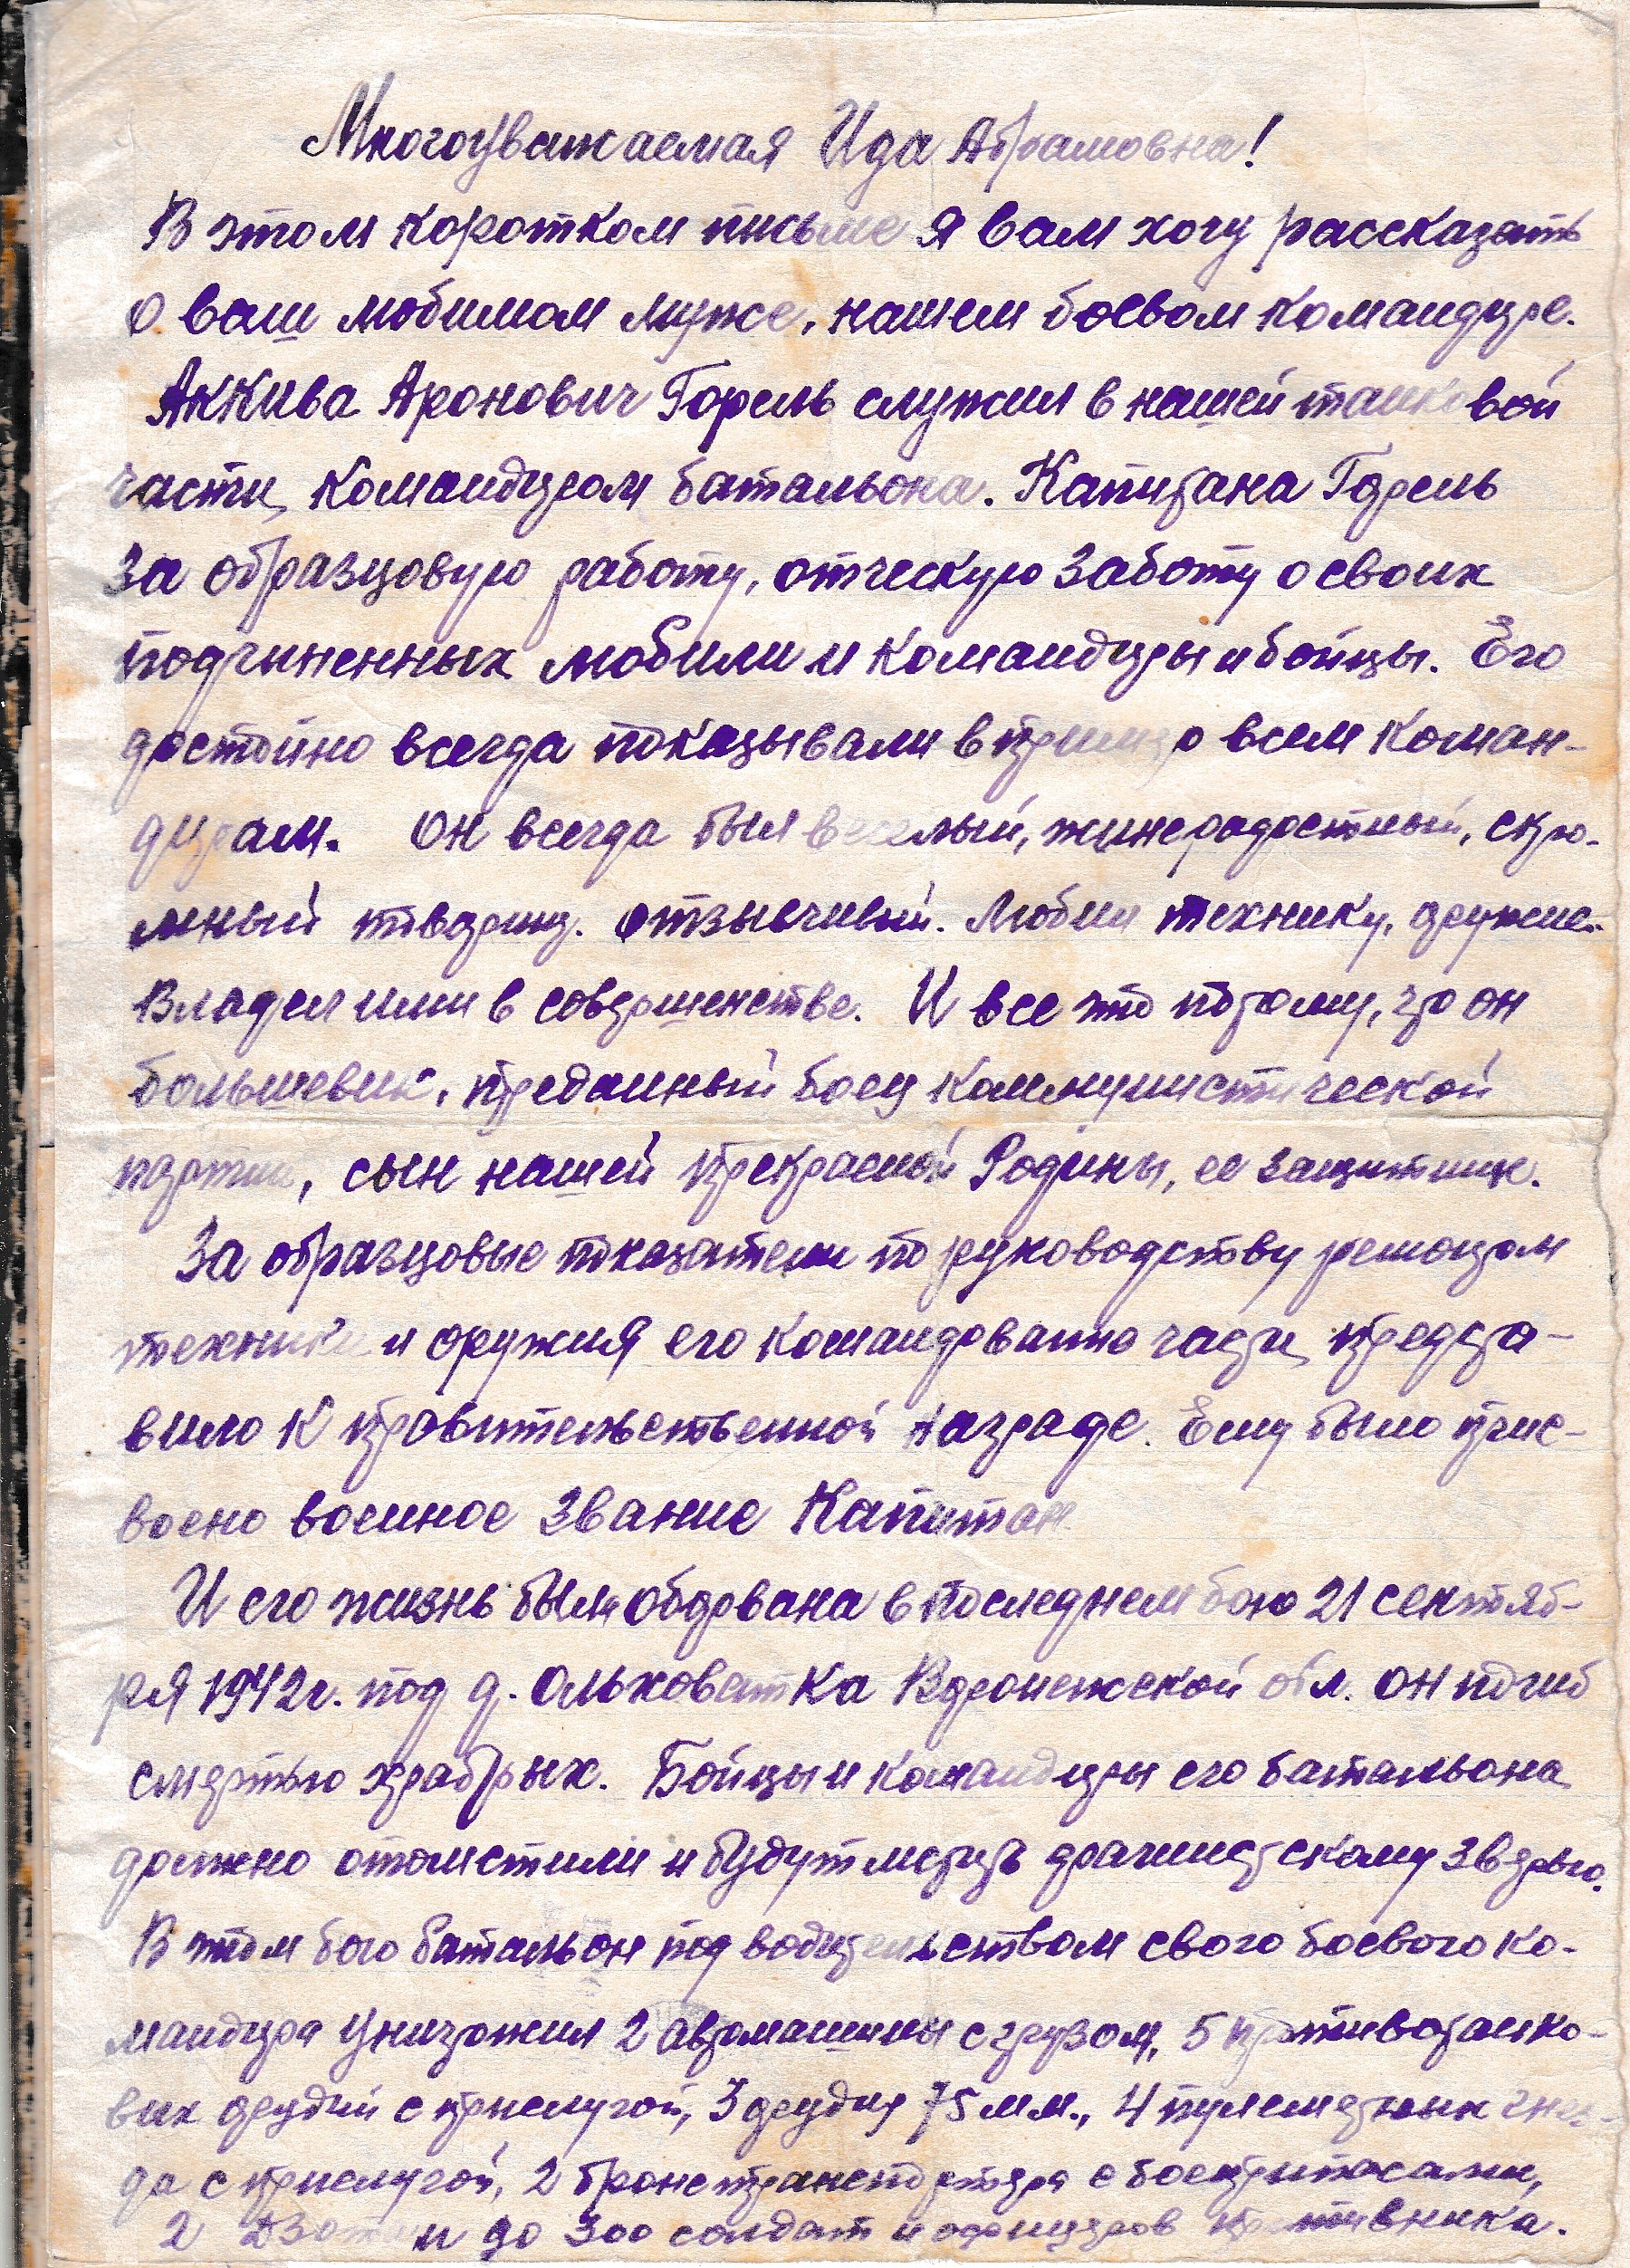 Многоуважаемая Ида Абрамовна!
В этом коротком письме я вам хочу рассказать
о ваш любимом муже, нашем боевом командире.
Аккива Аронович Горель служил в нашей танковой
части, командиром батальона. Капитана Горель
за образцовую работу, отческую заботу о своих
подчиненных любили и командиры и бойцы. Его
достойно всегда показывали в пример всем коман-
дирам. Он всегда был веселый, жинерадостный, скро-
мный товарищ. отзывчивый. Любил технику, оружие.
Владел ими в совершенстве. И все это потому, что он
большевик, преданный боец коммунистической
партии, сын нашей прекрасной Родины, ее защитник.
За образцовые показатели по руководству ремонтом
техники и оружия его командование части, предста-
вило к правительственной награде. Ему было прис-
воено военное звание Капитан
И его жизнь была обдорвана в последнем бою 21 сентяб-
ря 1942г. под д. Ольховатка Воронежской обл. он погиб
смертью храбрых. Бойцы и командиры его батальона
должно отомстили и будут мстить фашистскому зверью.
В этом бою батальон под водительством своего боевого ко-
мандира уничтожил 2 автомашины с грузом, 5 противотанко-
вых орудий с прислугой, 3 орудия 75 мм., 4 пулеметных гнез-
да с прислугой, 2 бронетранспортера с боеприпасами,
2 дзота и до 300 солдат и офицеров противника.